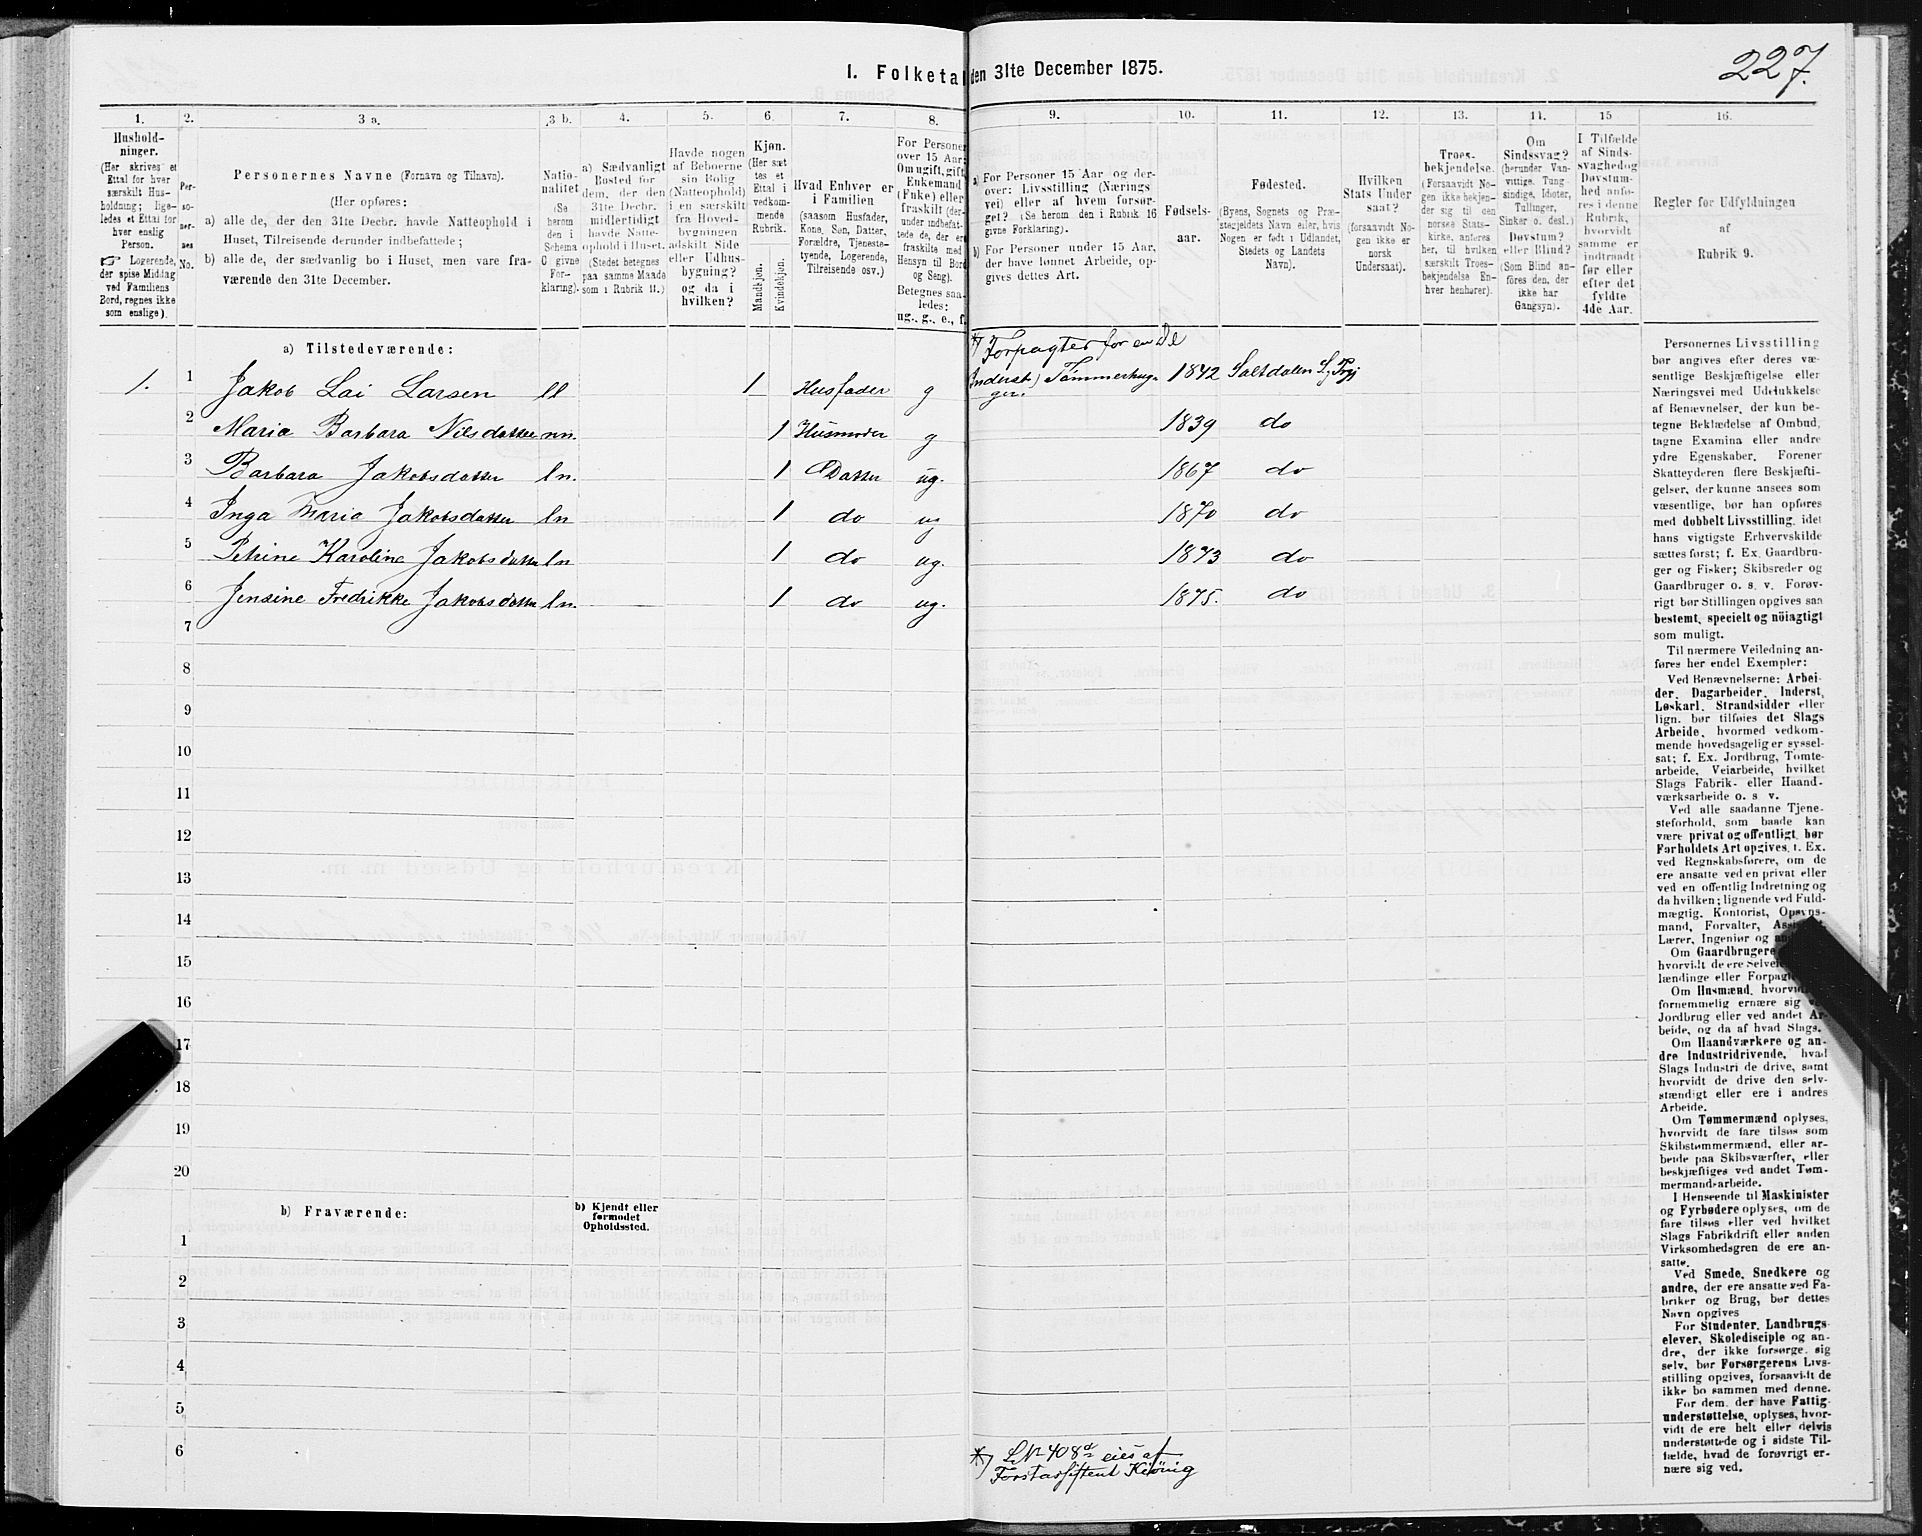 227.
I. Folketal den 31te December 1875.
1.
Hushold-
ninger.
(Her skrives et
Ettal for hver
særskilt Hus-
holdning; lige-
ledes et Ettal for
hver enslig
Person.
☞ Logerende,
der spise Middag
ved Familiens
Bord, regnes ikke
som enslige).
2.
Per-
so-
ner-
nes
No.
3 a.
Personernes Navne (Fornavn og Tilnavn).
(Her opføres:
a) alle de, der den 31te Decbr. havde Natteophold i
Huset, Tilreisende derunder indbefattede;
b) alle de, der sædvanlig bo i Huset, men vare fra-
værende den 31te December.
3 b.
Natio-
nalitet
(Se
herom
den i
Schema
C givne
For-
klaring).
4.
a) Sædvanligt
Bosted for
dem, der den
31te Decbr.
midlertidigt
havde Natte-
ophold i Huset.
(Stedet betegnes
paa samme Maade
som i Rubrik 11.)
5.
Havde nogen
af Beboerne
sin Bolig
(Natteophold)
i en særskilt
fra Hoved-
bygningen
adskilt Side
eller Udhus-
bygning?
og da i
hvilken?
6.
Kjøn.
(Her sæt
tes et
Ettal i
vedkom-
mende
Rubrik.
Mandkjøn.
Kvindekjøn.
7.
Hvad Enhver er
i Familien
(saasom Husfader,
Kone, Søn, Datter,
Forældre, Tjeneste-
tyende, Logerende,
Tilreisende osv.)
8.
For Personer
over 15 Aar:
Om ugift, gift,
Enkemand
(Enke) eller
fraskilt (der-
under indbefat-
tede de, der ere
fraskilte med
Hensyn til Bord
og Seng).
Betegnes saa-
ledes:
ug., g., e., f.
9.
a) For Personer 15 Aar og der-
over: Livsstilling (Nærings
vei) eller af hvem forsør-
get? (Se herom den i Rubrik 16
givne Forklaring).
b) For Personer under 15 Aar,
der have lønnet Arbeide, op-
gives dettes Art.
10.
Fødsels-
aar.
11.
Fødested.
(Byens, Sognets og Præ-
stegjeldets Navn eller, hvis
Nogen er født i Udlandet,
Stedets og Landets
Navn).
12.
Hvilken
Stats Under
saat?
(forsaavidt No-
gen ikke er
norsk
Undersaat).
13.
Troes-
bekjendelse.
(Forsaavidt No-
gen ikke bekjen-
der sig til den
norske Stats-
kirke, anføres
her, til hvilken
særskilt Troes-
bekjendelse En-
hver henhører).
14.
Om
Sindssvag?
(herunder Van-
vittige, Tung
sindige, Idioter,
Tullinger,
Sinker o. desl.)
Døvstum?
eller Blind?
(Som Blind an-
føres den, der
ikke har
Gangsyn).
15
I Tilfælde
af Sinds-
svaghed og
Døvstum-
hed anfø-
res i denne
Rubrik,
hvorvidt
samme er
indtraadt
før eller
efter det
fyldte
4de Aar.
16.
Regler for Udfyldningen
af
Rubrik 9.
a) Tilstedeværende:
*) Forpagter for en De
1. 1 Jakob Lai Larsen ll 1 Husfader g Inderst) Tømmerhug- 1842 Saltdalen S,
ger.
2 Maria Barbara Nilsdatter nn. 1 Husmoder g 1839 do
3 Barbara Jakobsdatter ln. 1 Datter ug. 1867 do
4 Inga Maria Jakobsdatter ln 1 do ug 1870 do
5 Petrine Karoline Jakobsdatter ln 1 do ug. 1873 do
6 Jensine Fredrikke Jakobsdatter ln. 1 do ug. 1875. do
7
8
9
10
11
12
13
14
15
16
17
18
19
20
b) Fraværende:
b) Kjendt eller
formodet
Opholdssted.
1
2
3
4
5
6
*) LN 408 d eies af
Forstassistent Kiønig
Personernes Livsstilling
bør angives efter deres væ-
sentlige Beskjæftigelse eller
Næringsvei med Udelukkelse
af Benævnelser, der kun be-
tegne Beklædelse af Ombud,
tagne Examina eller andre
ydre Egenskaber. Forener
Skatteyderen flere Beskjæfti-
gelser, der kunne ansees som
væsentlige, bør han opføres
med dobbelt Livsstilling, idet
hans vigtigste Erhvervskilde
sættes først; f. Ex. Gaardbru-
ger og Fisker; Skibsreder og
Gaardbruger o. s. v. Forøv-
rigt bør Stillingen opgives saa
bestemt, specielt og nöiagtigt
som muligt.
Til nærmere Veiledning an-
føres her endel Exempler:
Ved Benævnelserne: Arbei-
der, Dagarbeider, Inderst,
Løskarl, Strandsidder eller
lign. bør tilføies det Slags
Arbeide, hvormed vedkom-
mende hovedsagelig er syssel-
sat; f. Ex. Jordbrug, Tomte-
arbeide, Veiarbeide, hvilket
Slags Fabrik- eller Haand-
værksarbeide o. s v.
Ved alle saadanne Tjene-
steforhold, som baade kan
være privat og offentligt, bør
Forholdets Art opgives, t. Ex.
ved Regnskabsførere, om de
ere ansatte ved en privat eller
ved en offentlig Indretning og
da hvilken; lignende ved Fuld-
mægtig, Kontorist, Opsyns-
mand, Forvalter,
Lærer, Ingeniør og
Om Gaardbrugere
hvorvidt de ere
lændinge eller
Om Husmænd, hvorvidt
fornemmelig ernære sig
Jordbrug eller ved andet Ar-
beide, og da af hvad Slags.
Om Haandværkere og an-
dre Industridrivende, hvad
Slags Industri de drive, samt
hvorvidt de drive den selv-
stændigt eller ere i andres
Arbeide.
Om Tømmermænd oplyses,
hvorvidt de fare tilsøs som
Skibstømmermænd, eller ar-
beide paa Skibsværfter, eller
beskjæftiges ved andet Tøm-
mermandsarbeide.
I Henseende til Maskinister
og Fyrbødere oplyses, om de
fare tilsøs eller ved hvilket
Slags Fabrikdrift eller anden
Virksomhedsgren de ere an-
satte.
Ved Smede, Snedkere og
andre, der ere ansatte ved Fa-
briker og Brug, bør dettes
Navn opgives
For Studenter, Landbrugs-
elever, Skoledisciple og an-
dre, der ikke forsørge sig
selv, bør Forsørgerens Livs-
stilling opgives, forsaavidt de
ikke bo sammen med denne.
For dem, der have Fattig-
understøttelse, oplyses, hvor-
vidt de ere helt eller delvis
understøttede og i sidste Til-
fælde, hvad de forøvrigt er-
nære sig ved.